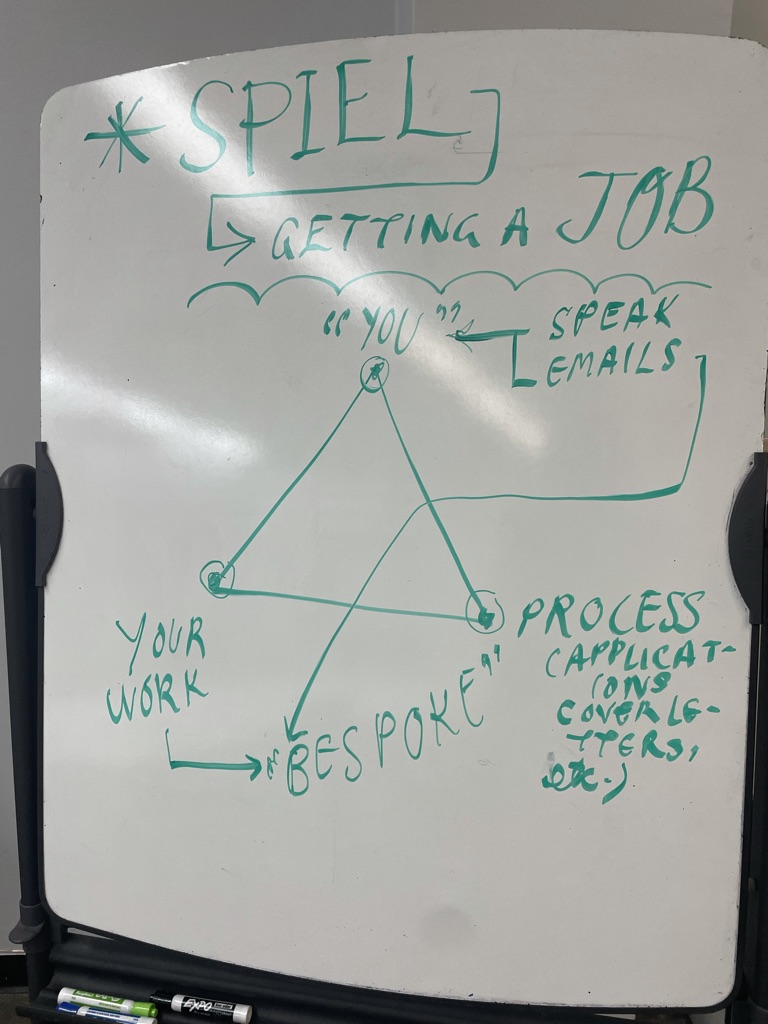 * SPIEL
GETTING A JOB
"YOU"
SPEAK
EMAILS
YOUR
WORK
PROCESS
(APPLICAT-
IONS
COVER LE-
TTERS,
etc.)
"BESPOKE"
EXPO